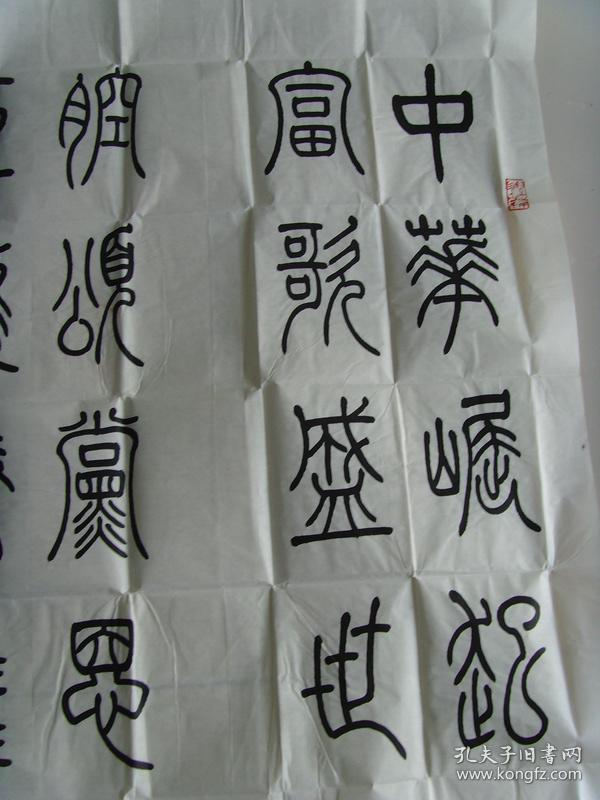 中華崛起
富歌盛世
腔頌黨恩
孔夫子旧书网
www.kongfz.com